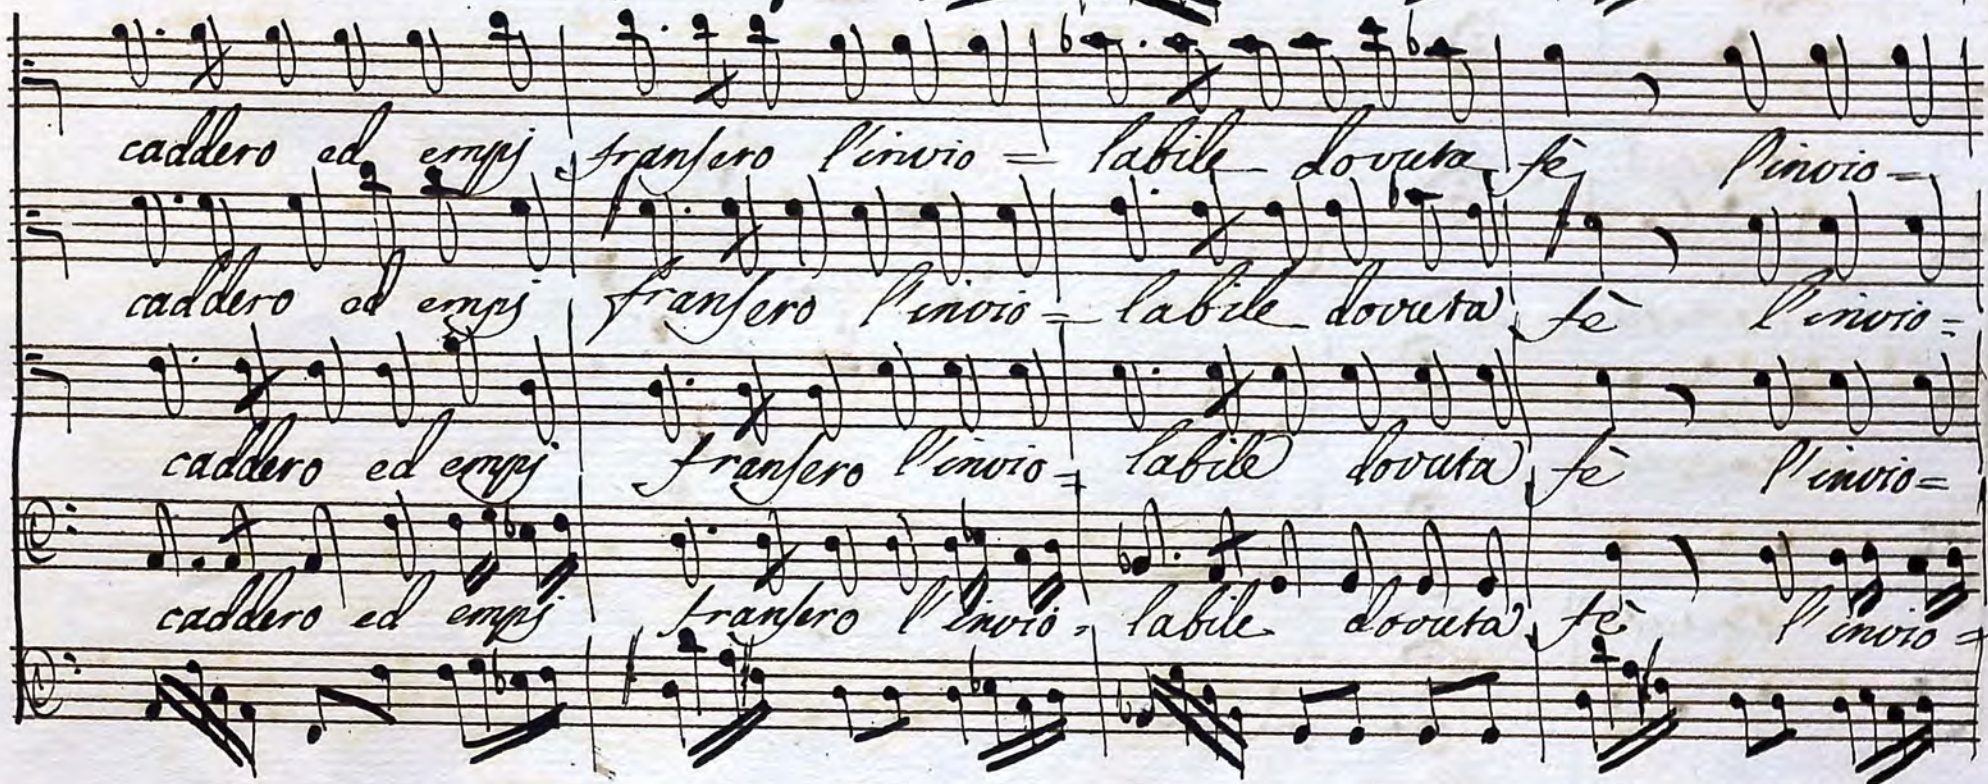 caddero ed empj franſero l'invio = labile dovuta fè l'invio =
caddero ed empj franſero l'invio = labile dovuta fè l'invio =
caddero ed empj franſero l'invio = labile dovuta fè l'invio =
caddero ed empj franſero l'invio = labile dovuta fè l'invio =